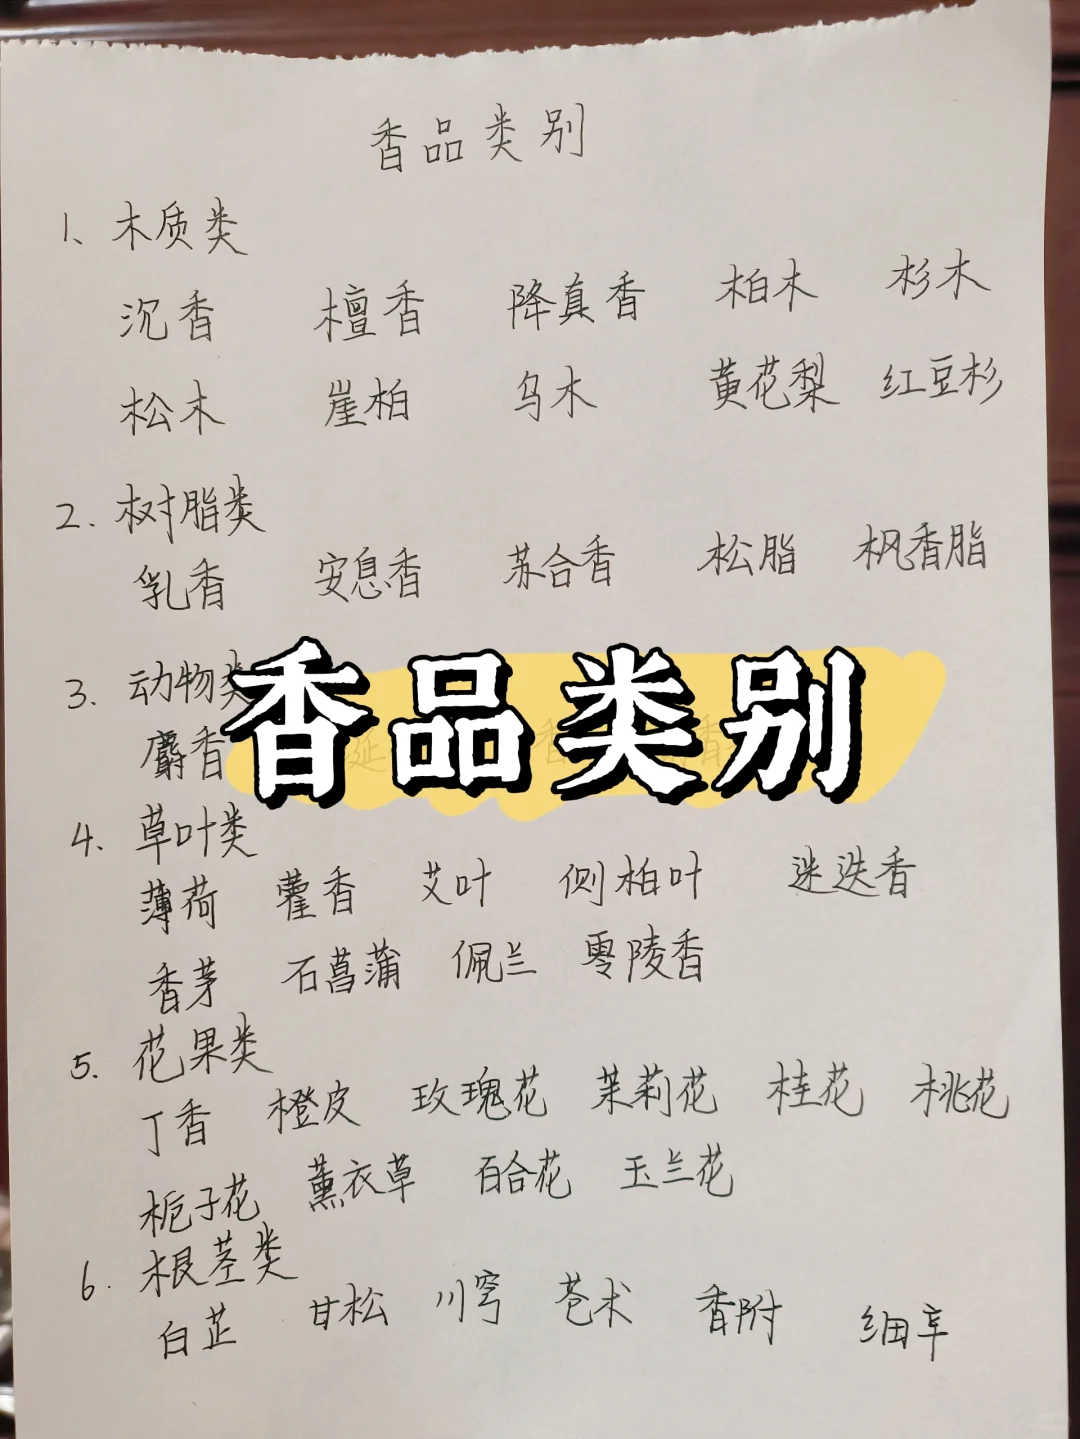 香品类别
1、木质类
沉香 檀香 降真香 柏木 杉木
松木 崖柏 乌木 黄花梨 红豆杉
2.树脂类
乳香 安息香 苏合香 松脂 枫香脂
3.动物类
麝香
香品类别
4.草叶类
薄荷 藿香 艾叶 侧柏叶 迷迭香
香茅 石菖蒲 佩兰 零陵香
5.花果类
丁香 橙皮 玫瑰花 茉莉花 桂花 桃花
栀子花 薰衣草 百合花 玉兰花
6.根茎类
白芷 甘松 川穹 苍术 香附 细辛